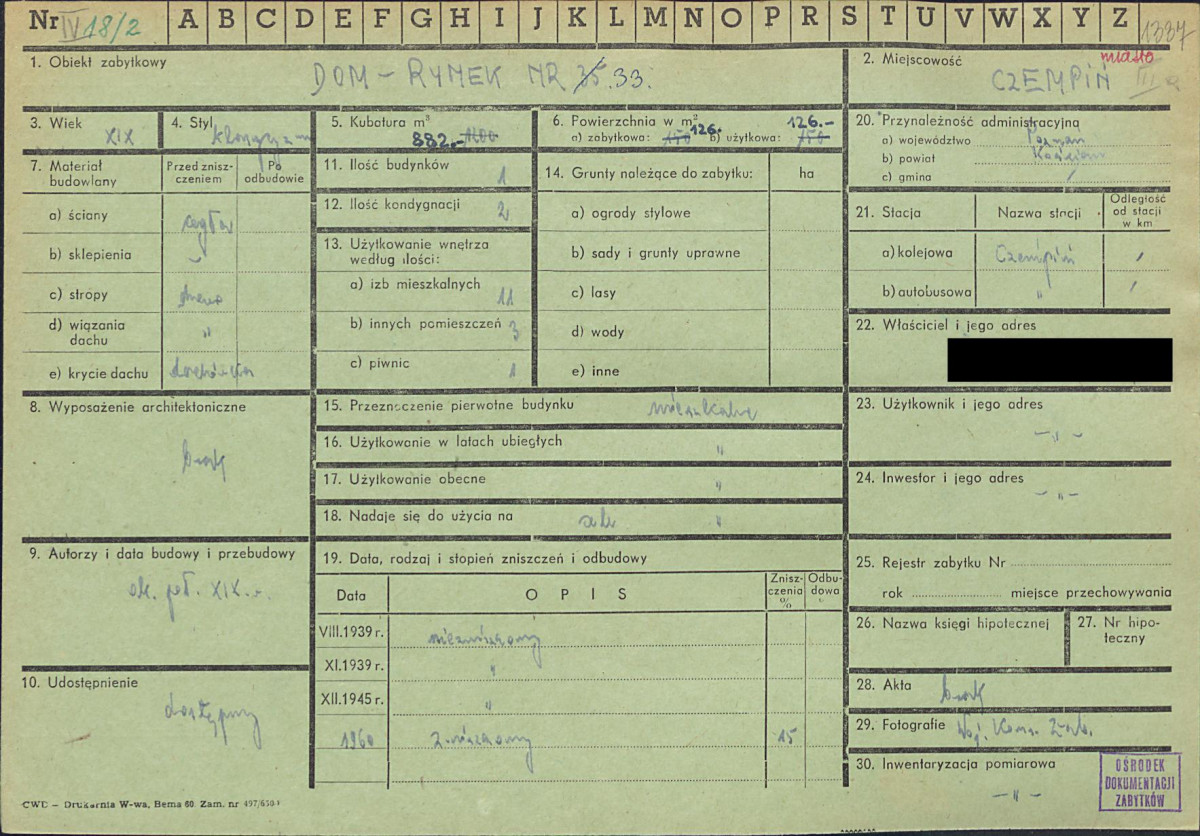 Nr IV 18/2 A B C D E F G H I J K L M N O P R S T U V W X Y Z 1337
1. Obiekt zabytkowy DOM – RYNEK NR 35 33.
2. Miejscowość miasto CZEMPIŃ
3. Wiek XIX
4. Styl
5. Kubatura m³ 882.-
6. Powierzchnia w m²
a) zabytkowa: 150 126.- b) użytkowa: 150 126.-
20. Przynależność administracyjna
a) województwo Poznań
b) powiat Kościan
c) gmina /
7. Materiał budowlany
Przed znisz-
czeniem
Po
odbudowie
a) ściany cegła
b) sklepienia –
c) stropy drewno
d) wiązania
dachu "
e) krycie dachu dachówka
11. Ilość budynków 1
12. Ilość kondygnacji 2
13. Użytkowanie wnętrza
według ilości:
a) izb mieszkalnych 11
b) innych pomieszczeń 3
c) piwnic 1
14. Grunty należące do zabytku: ha
a) ogrody stylowe
b) sady i grunty uprawne
c) lasy
d) wody
e) inne
21. Stacja Nazwa stacji Odległość
od stacji
w km
a) kolejowa Czempiń /
b) autobusowa " /
22. Właściciel i jego adres
8. Wyposażenie architektoniczne
brak
15. Przeznaczenie pierwotne budynku mieszkalne
16. Użytkowanie w latach ubiegłych "
17. Użytkowanie obecne "
18. Nadaje się do użycia na cele "
23. Użytkownik i jego adres
–„–
24. Inwestor i jego adres
–„–
9. Autorzy i data budowy i przebudowy
ok. poł. XIX w.
19. Data, rodzaj i stopień zniszczeń i odbudowy
Data OPIS Znisz-
czenia
%
Odbu-
dowa
VIII.1939 r. niezniszczony
XI.1939 r. "
XII.1945 r. "
1960 zniszczony 15
25. Rejestr zabytku Nr
rok miejsce przechowywania
26. Nazwa księgi hipotecznej
27. Nr hipo-
teczny
10. Udostępnienie
dostępny
28. Akta brak
29. Fotografie Woj. Kons. Zab.
30. Inwentaryzacja pomiarowa
–„–
OŚRODEK
DOKUMENTACJI
ZABYTKÓW
CWD – Drukarnia W-wa, Bema 60. Zam. nr 497/650